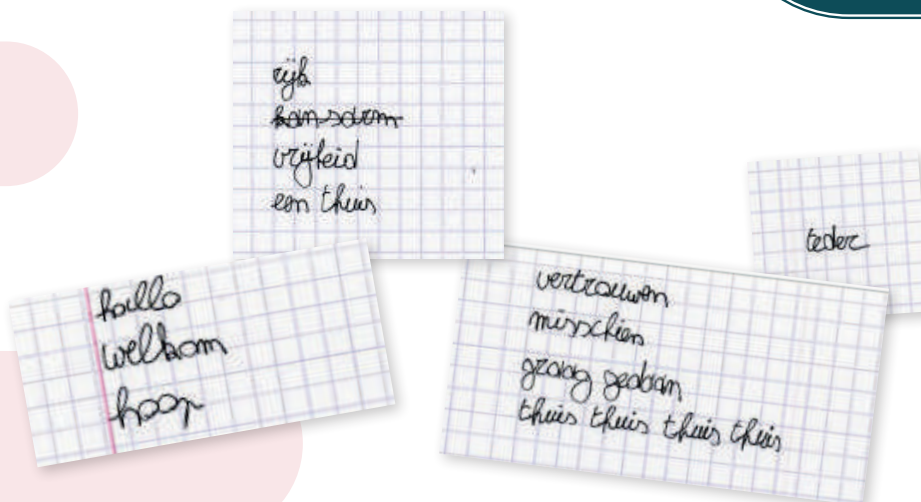 rijk
kansarm
vrijheid
een thuis
teder
hallo
welkom
hoop
vertrouwen
misschien
graag gedaan
thuis thuis thuis thuis